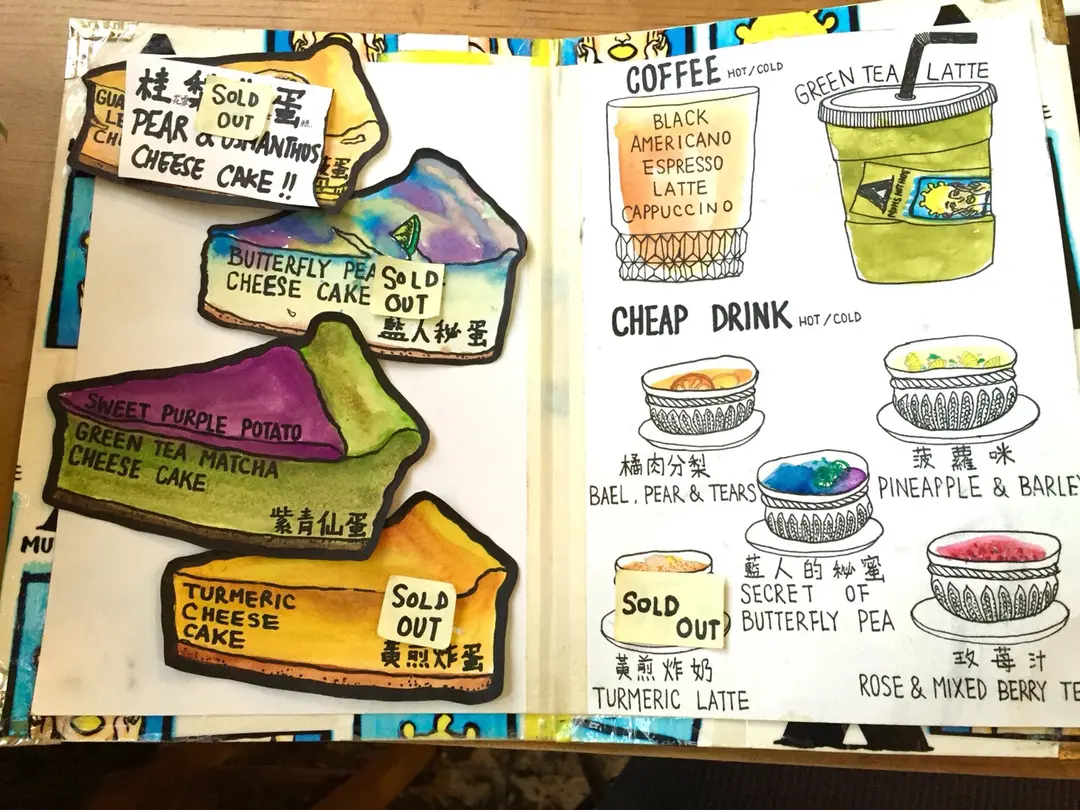 桂
蛋
SOLD
OUT
PEAR & OSMANTHUS
CHEESE CAKE !!
BUTTERFLY PEA
CHEESE CAKE
SOLD
OUT
藍人秘蛋
SWEET PURPLE POTATO
GREEN TEA MATCHA
CHEESE CAKE
紫青仙蛋
TURMERIC
CHEESE
CAKE
SOLD
OUT
黃煎炸蛋
COFFEE HOT/COLD
BLACK
AMERICANO
ESPRESSO
LATTE
CAPPUCCINO
GREEN TEA LATTE
CHEAP DRINK HOT/COLD
橘肉分梨
BAEL, PEAR & TEARS
菠蘿咪
PINEAPPLE & BARLEY
藍人的秘蜜
SECRET OF
BUTTERFLY PEA
SOLD
OUT
黃煎炸奶
TURMERIC LATTE
玫莓汁
ROSE & MIXED BERRY TE